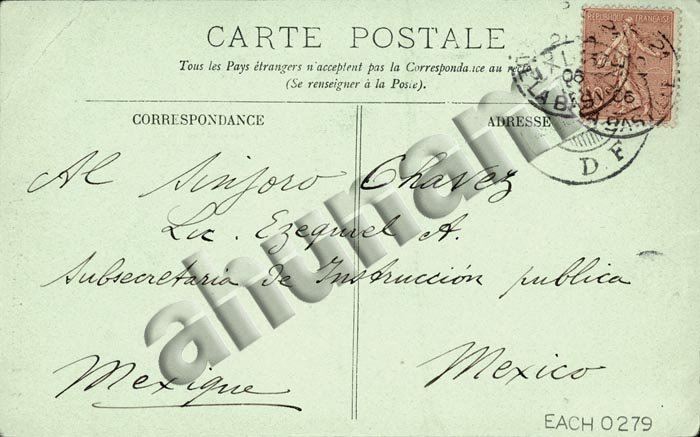 CARTE POSTALE
Tous les Pays étrangers n'acceptent pas la Correspondance au recto
(Se renseigner à la Poste).
RÉPUBLIQUE FRANÇAISE
06
D F
CORRESPONDANCE
ADRESSE
Al Sinjoro Chavez
Lic. Ezequiel A.
Subsecretaria de Instrucción publica
Mexique
Mexico
ahunam
EACH 0279